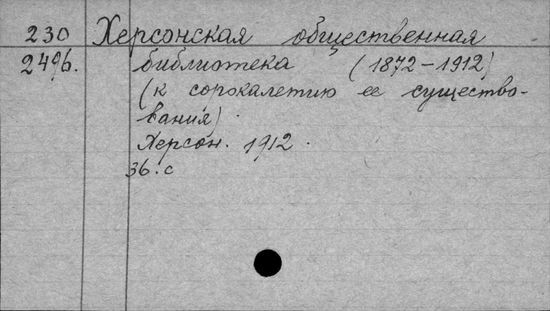 230 Херсонская общественная
2496. библиотека (1872-1912)
(к сорокалетию ее существо-
вания).
Херсон. 1912.
36. с